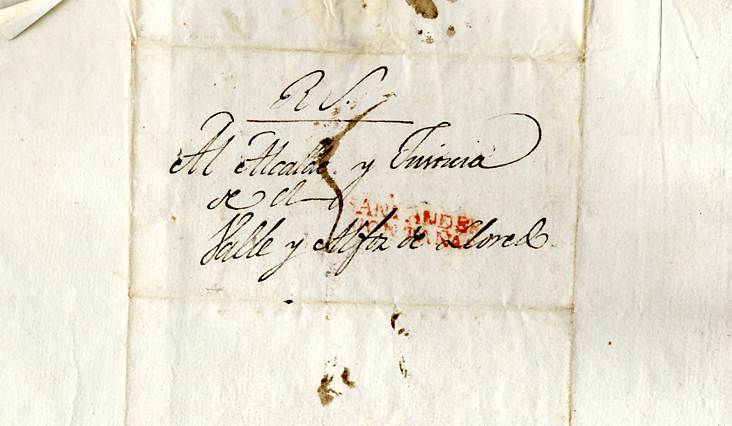 R S.
Al Alcalde y Justicia
de el
Valle y Alfoz de Lloredo
SANTANDER
MONTAÑA